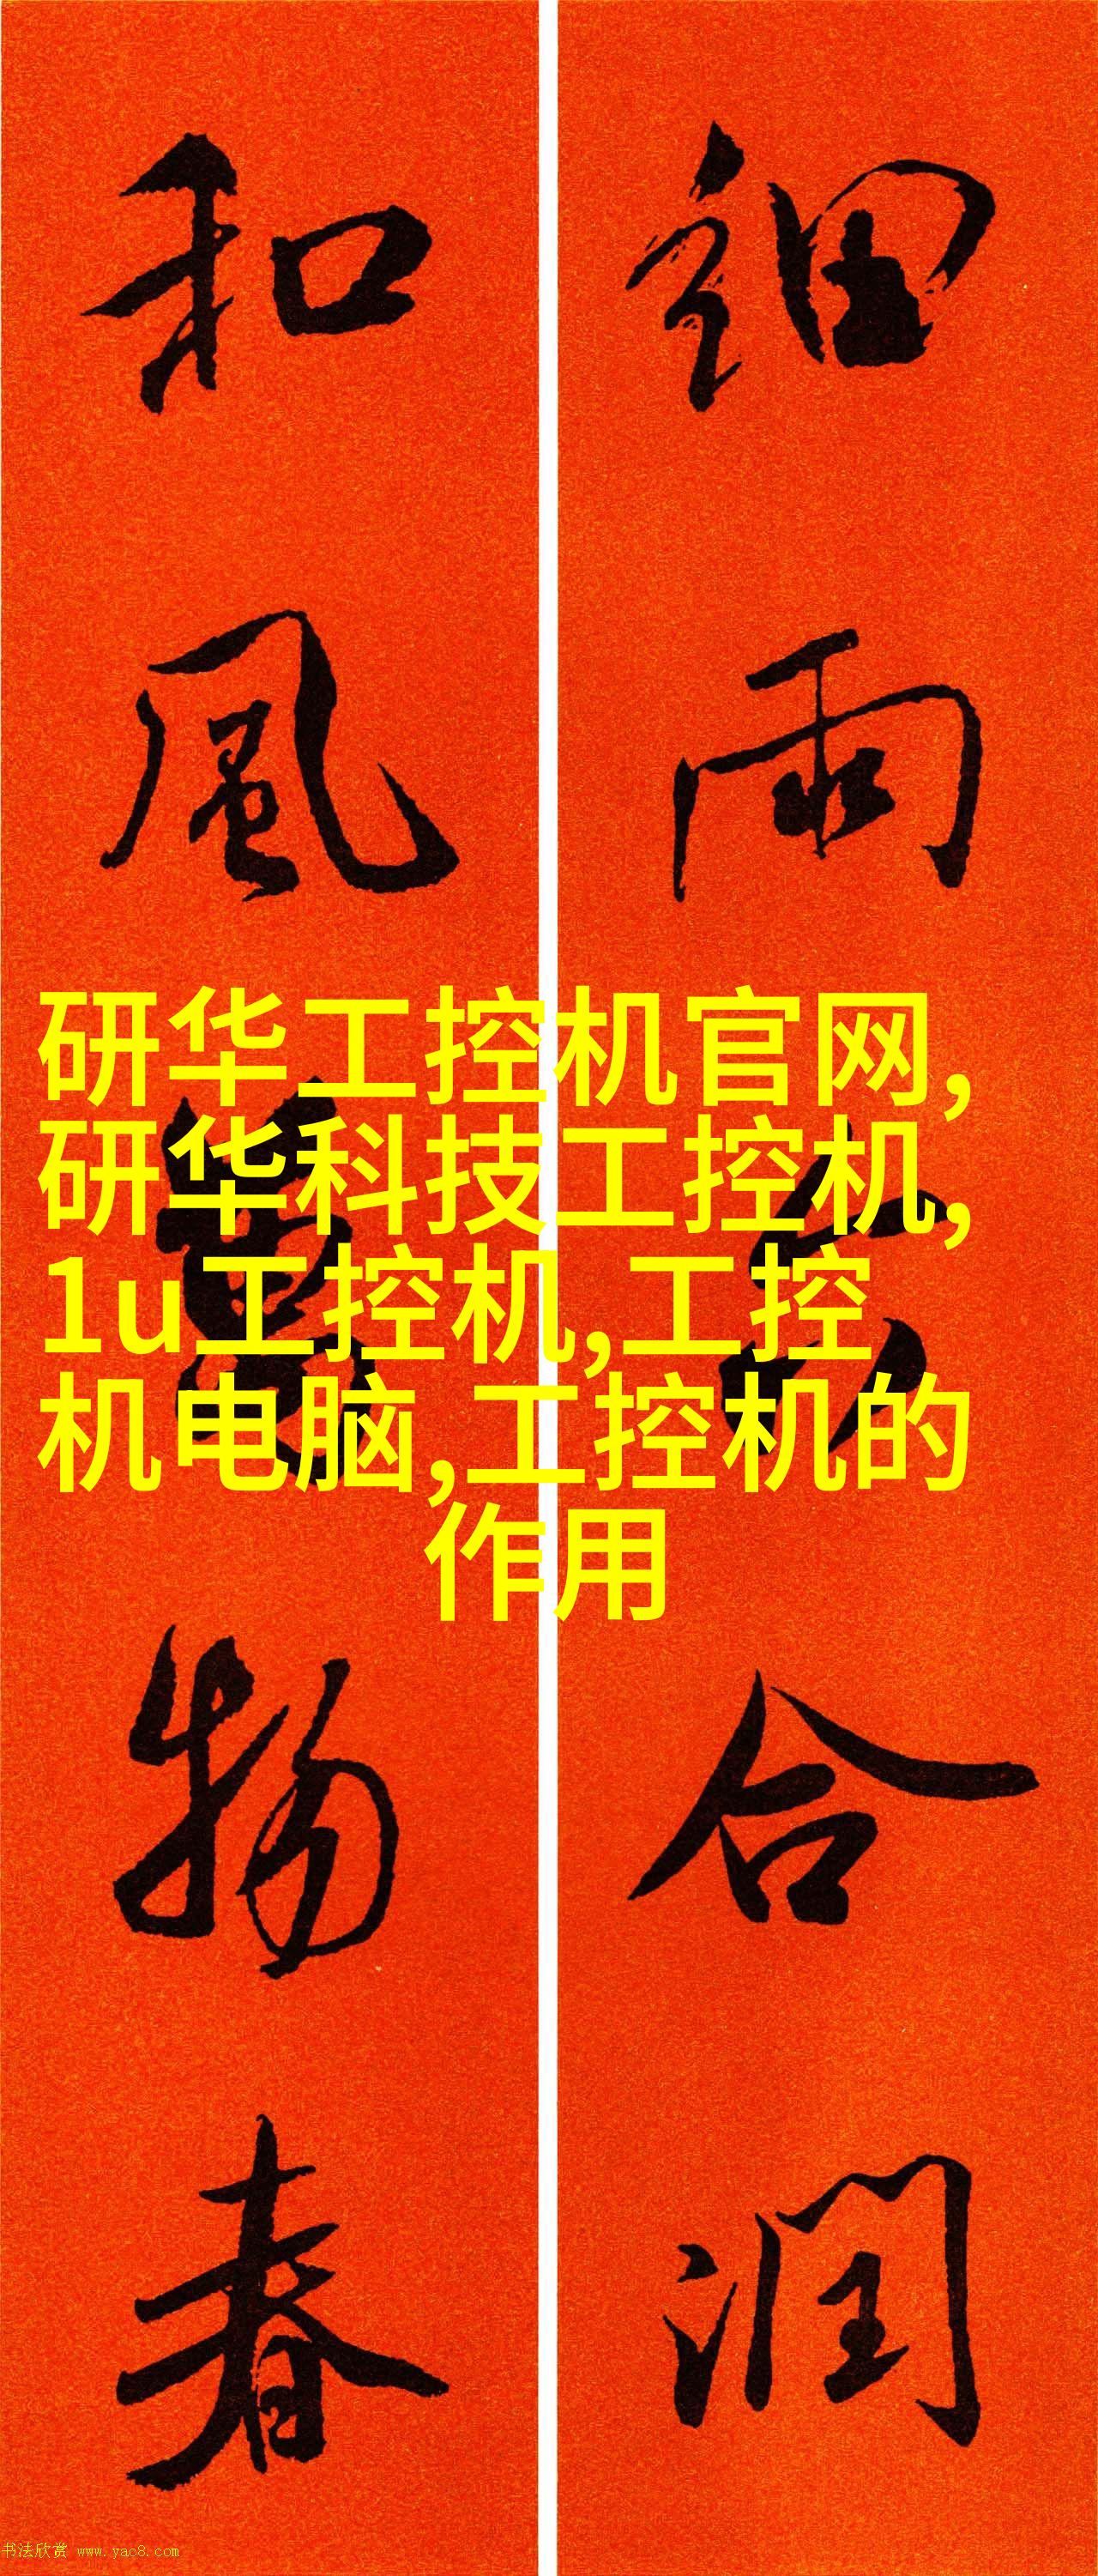 细雨
合润
和风
物春
研华工控机官网,
研华科技工控机,
1u工控机,工控
机电脑,工控机的
作用
书法欣赏 www.yac8.com